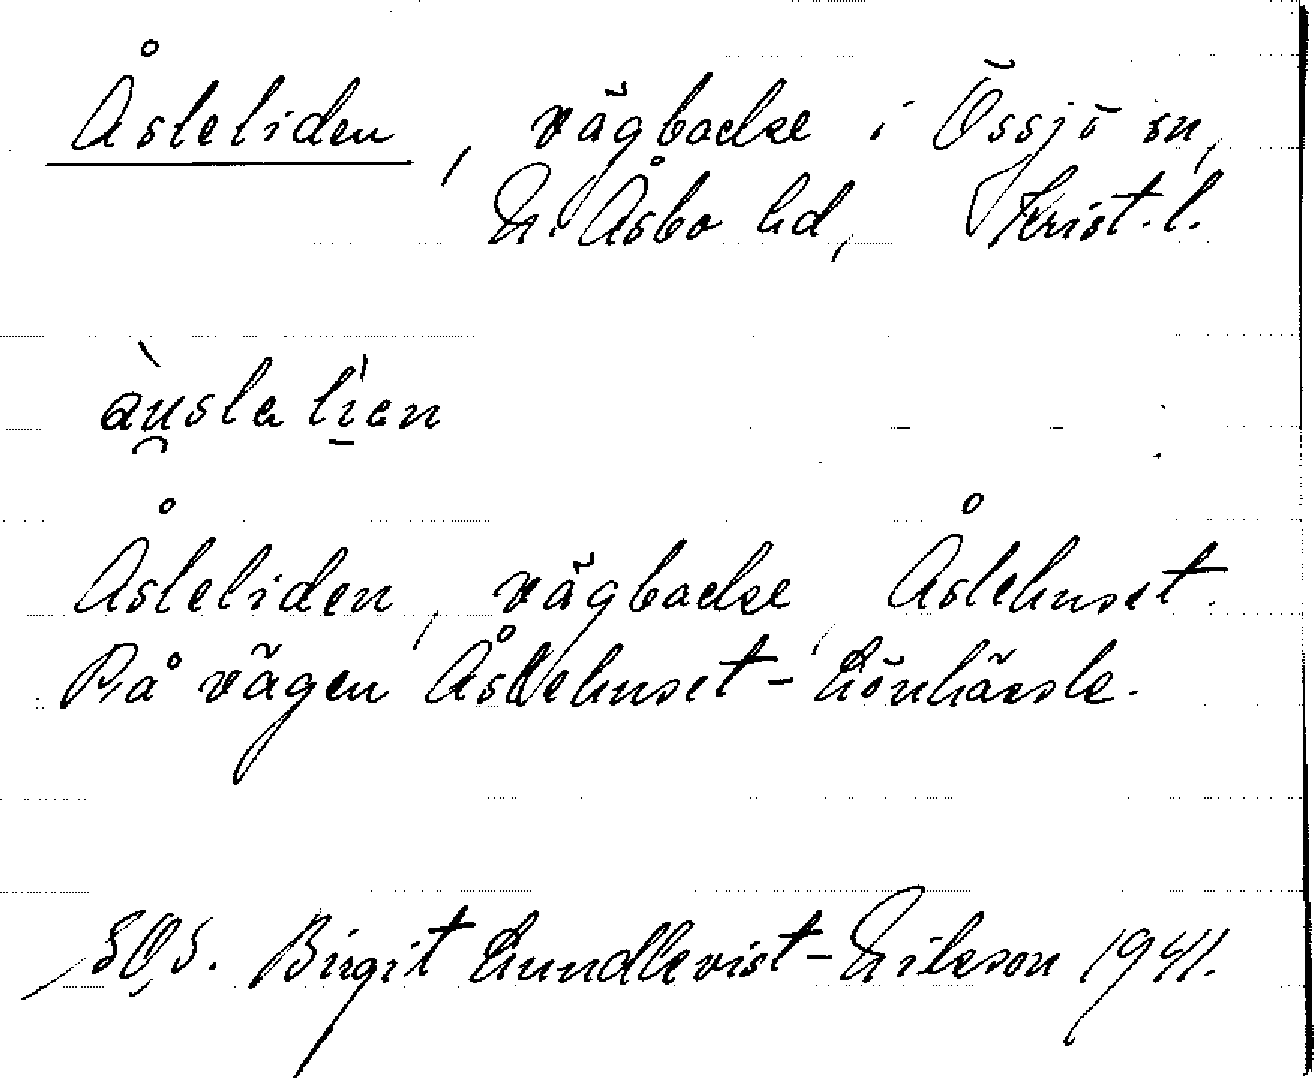 Åsleliden, vägbacke i Össjö sn,
N. Åsbo hd, Krist. l.
àu̯slalíen
Åsleliden, vägbacke, Åslehuset.
På vägen Åslehuset - Lönhässle.
SOS. Birgit Lundkvist - Nilsson 1941.